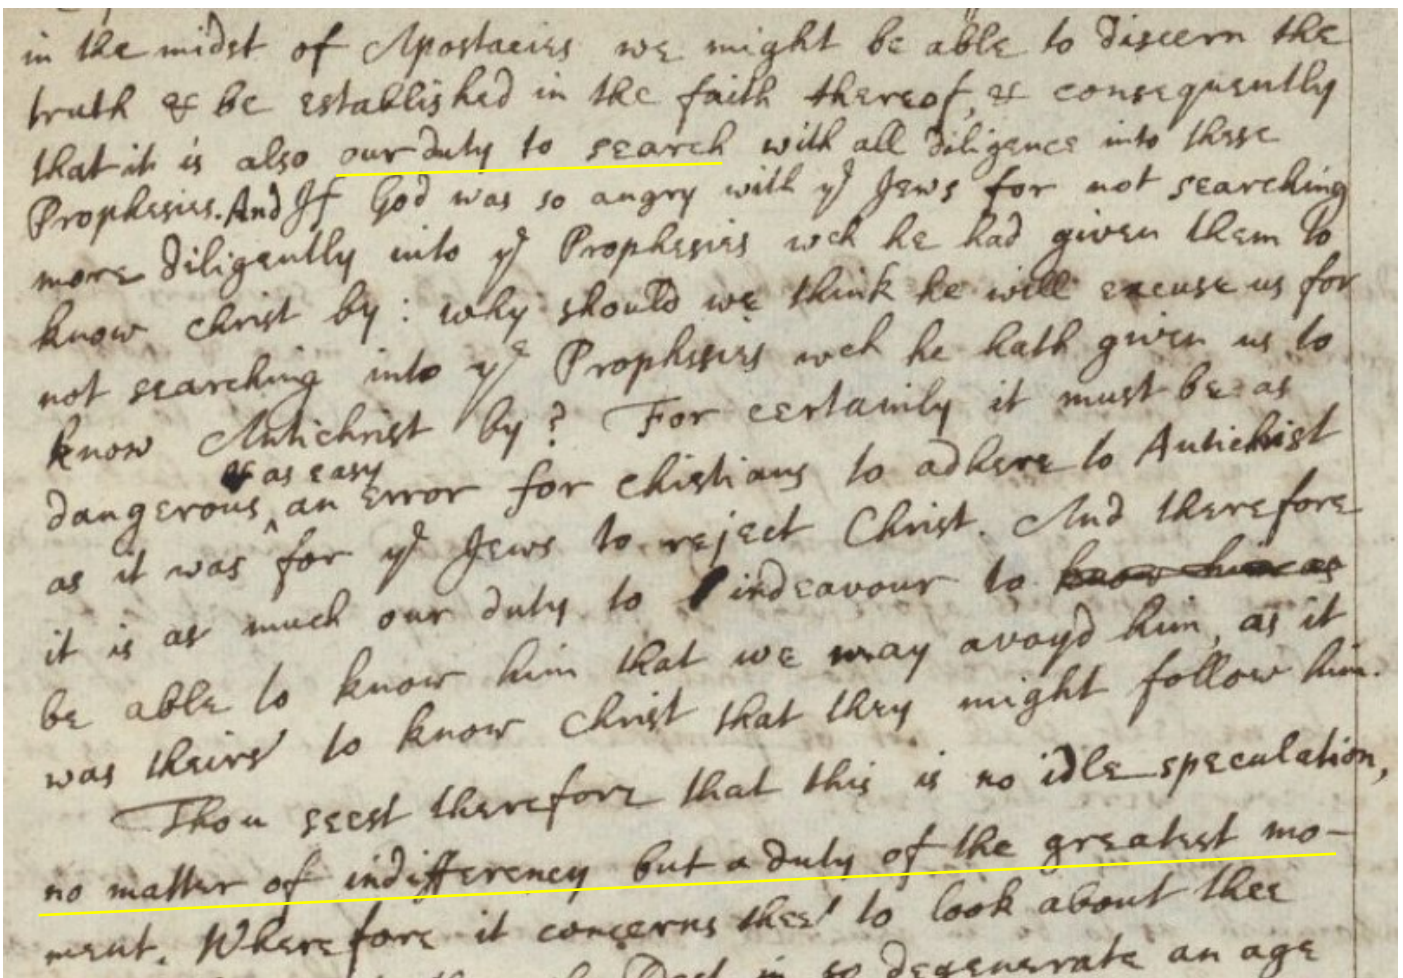 in the midst of Apostacies we might be able to discern the
truth & be established in the faith thereof, & consequently
that it is also our duty to search with all diligence into these
Prophesies. And If God was so angry with ye Jews for not searching
more diligently into ye Prophesies wch he had given them to
know Christ by: why should we think he will excuse us for
not searching into ye Prophesies wch he hath given us to
know Antichrist by? For certainly it must be as
& as easy
dangerous ^ an error for Christians to adhere to Antichrist
as it was for ye Jews to reject Christ. And therefore
it is as much our duty to indeavour to know him as
be able to know him that we may avoyd him, as it
was theirs to know Christ that they might follow him.
Thou seest therefore that this is no idle speculation,
no matter of indifferency but a duty of the greatest mo-
ment. Wherefore it concerns thee to look about thee
in so degenerate an age